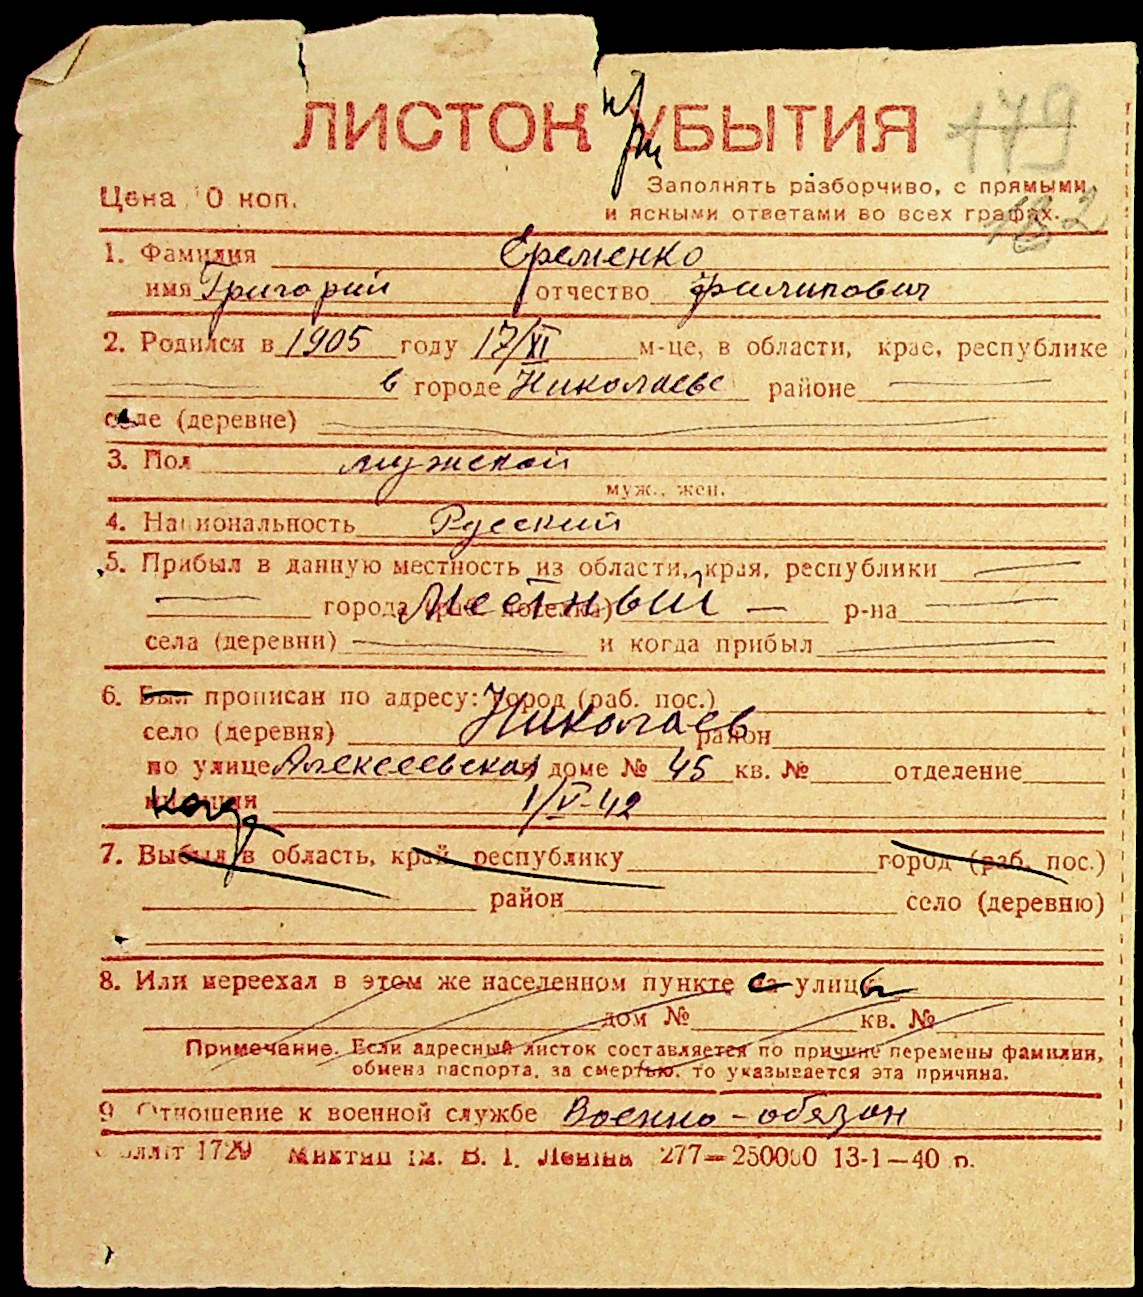 ЛИСТОК УБЫТИЯ
при
179
182
Цена 10 коп.
Заполнять разборчиво, с прямыми
и ясными ответами во всех графах.
1. Фамилия Еременко
имя Григорий отчество Филипович
2. Родился в 1905 году 17/XI м-це, в области, крае, республике
в городе Николаеве районе
селе (деревне)
3. Пол мужской
муж., жен.
4. Национальность Русский
5. Прибыл в данную местность из области, края, республики
города Местный р-на
села (деревни) и когда прибыл
6. Был прописан по адресу: город (раб. пос.)
село (деревня) Николаев район
по улице Алексеевская доме № 45 кв. № отделение
милиции когда 1/V-42
7. Выбыл в область, край, республику город (раб. пос.)
район село (деревню)
8. Или переехал в этом же населенном пункте с улицы
дом № кв. №
Примечание. Если адресный листок составляется по причине перемены фамилии,
обмена паспорта, за смертью, то указывается эта причина.
9. Отношение к военной службе Военно-обязан
1729 Миктип ім. В. І. Леніна 277—250000 13-1—40 р.